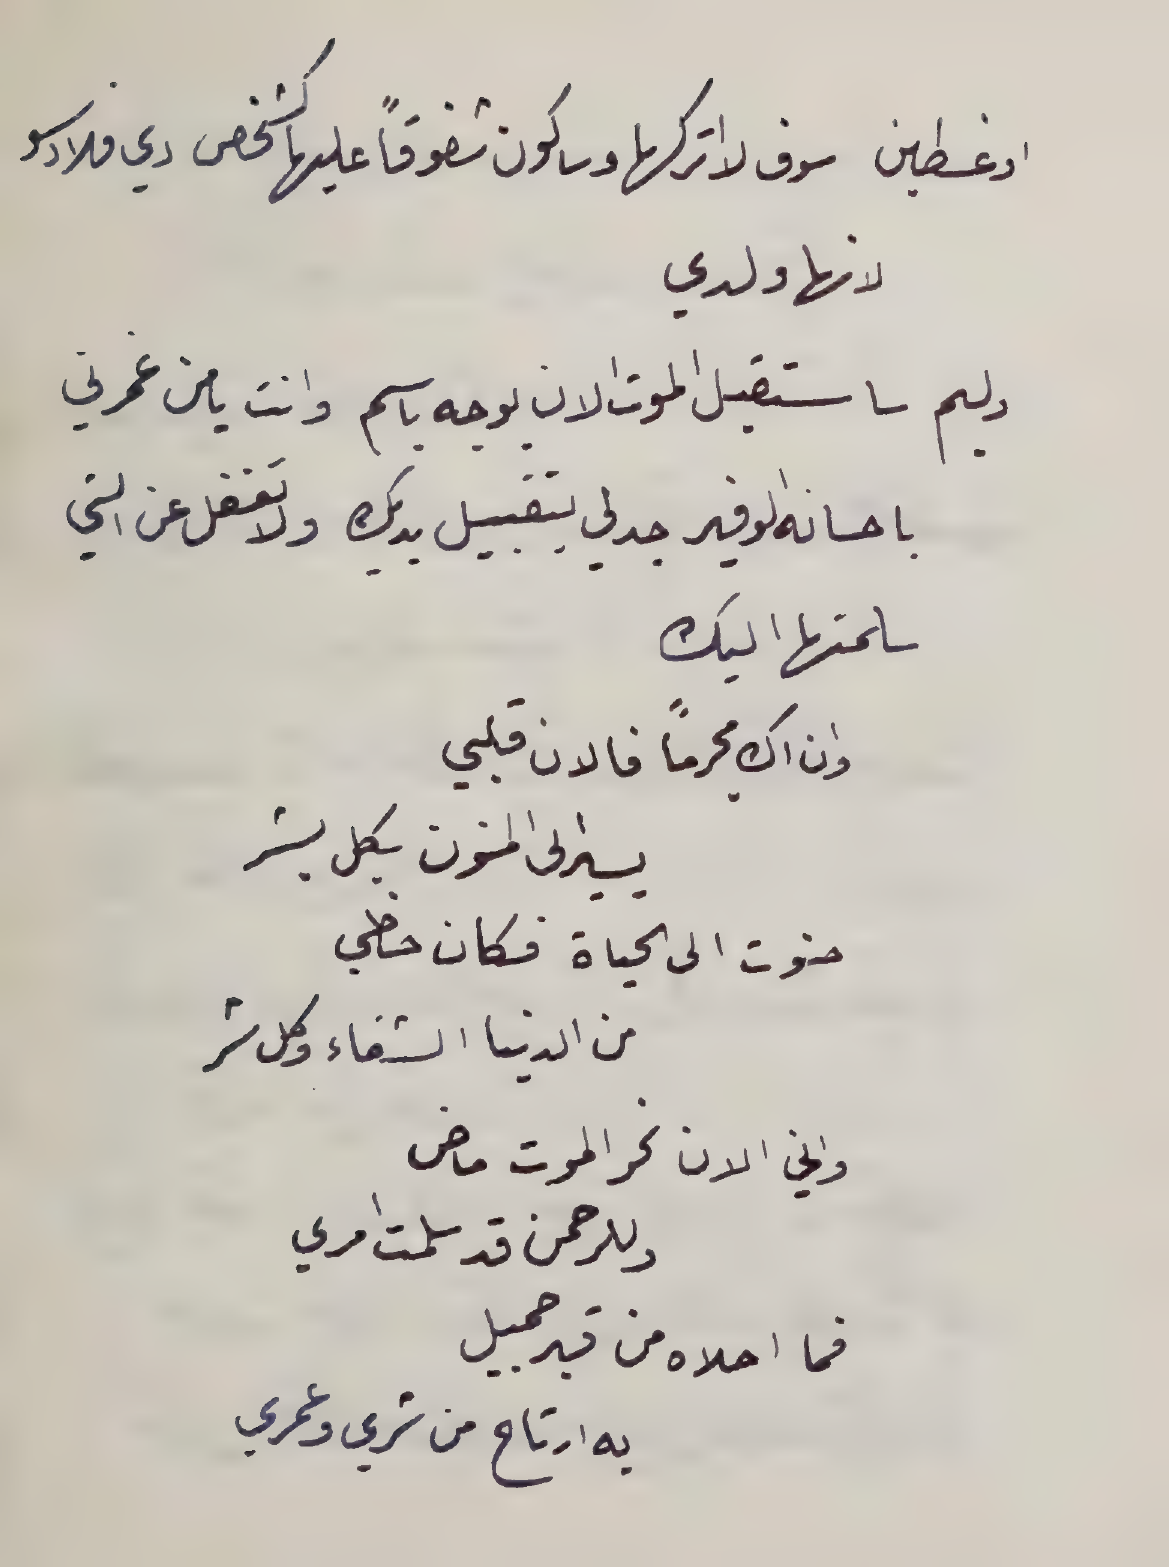 اوغسطين سوف لا اتركها وساكون شفوقاً عليها كشخص دي فلادسو
لانها ولدي
وليم ساستقبل الموت الان بوجه باسم وانت يامن غمرني
باحسانه الوفير جد لي بتقبيل يديك ولا تغفل عن التي
سلمتها اليك
وان اك مجرماً فالان قلبي
يسير الى المنون بكل بشر
حنوت الى الحياة فكان حظي
من الدنيا الشقاء وكل شر
واني الان نحو الموت ماض
وللرحمن قد سلمت امري
فما احلاه من قبر جميل
به ارتاح من شري وعمري